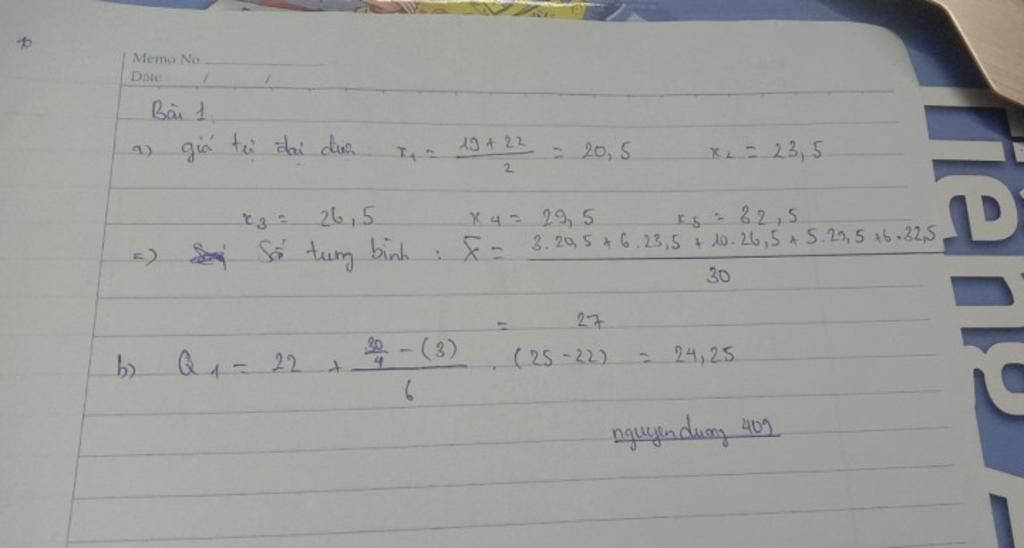 Memo No
Date / /
Bài 1.
a) giá trị đại diện x₁ = \frac{19+22}{2} = 20,5 x₂ = 23,5
x₃ = 26,5 x₄ = 29,5 x₅ = 32,5
=) Số trung bình : x̄ = \frac{3.20,5 + 6.23,5 + 10.26,5 + 5.29,5 + 6.32,5}{30}
= 27
b) Q₁ = 22 + \frac{\frac{30}{4} - (3)}{6} . (25-22) = 24,25
nguyendung 409